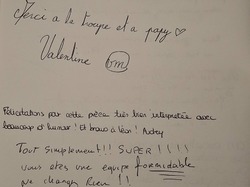 Merci a la troupe et a papy ♡
Valentine bm
Félicitations par cette pièce très très interpretée avec
beaucoup et humour! Et bravo à Léon! Audrey
Tout Simplement!!! SUPER!!!!
vous etes une équipe formidable
ne changez Rien!!